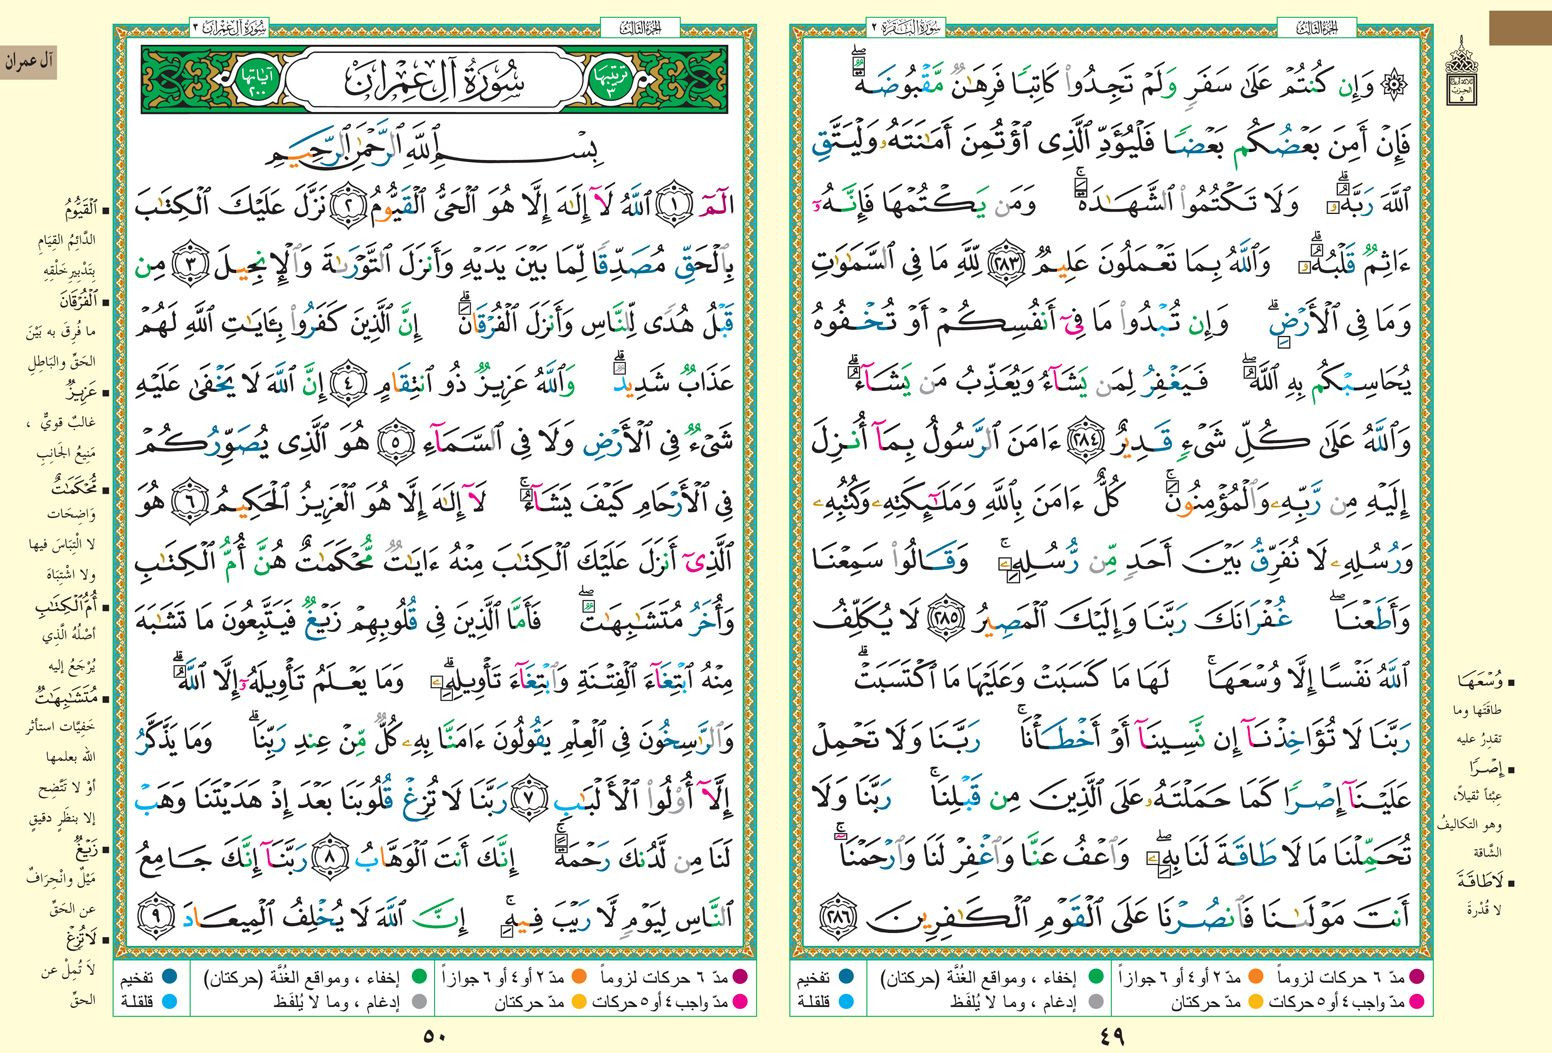 سُورَةُ البَقَرَة ٢
الجُزءُ الثَّالِثُ
۞ وَإِن كُنتُمْ عَلَىٰ سَفَرٍ وَلَمْ تَجِدُوا۟ كَاتِبًا فَرِهَٰنٌ مَّقْبُوضَةٌ
فَإِنْ أَمِنَ بَعْضُكُم بَعْضًا فَلْيُؤَدِّ ٱلَّذِى ٱؤْتُمِنَ أَمَٰنَتَهُۥ وَلْيَتَّقِ
ٱللَّهَ رَبَّهُۥ وَلَا تَكْتُمُوا۟ ٱلشَّهَٰدَةَ وَمَن يَكْتُمْهَا فَإِنَّهُۥٓ
ءَاثِمٌ قَلْبُهُۥ وَٱللَّهُ بِمَا تَعْمَلُونَ عَلِيمٌ ٢٨٣ لِّلَّهِ مَا فِى ٱلسَّمَٰوَٰتِ
وَمَا فِى ٱلْأَرْضِ وَإِن تُبْدُوا۟ مَا فِىٓ أَنفُسِكُمْ أَوْ تُخْفُوهُ
يُحَاسِبْكُم بِهِ ٱللَّهُ فَيَغْفِرُ لِمَن يَشَآءُ وَيُعَذِّبُ مَن يَشَآءُ
وَٱللَّهُ عَلَىٰ كُلِّ شَىْءٍ قَدِيرٌ ٢٨٤ ءَامَنَ ٱلرَّسُولُ بِمَآ أُنزِلَ
إِلَيْهِ مِن رَّبِّهِۦ وَٱلْمُؤْمِنُونَ كُلٌّ ءَامَنَ بِٱللَّهِ وَمَلَٰٓئِكَتِهِۦ وَكُتُبِهِۦ
وَرُسُلِهِۦ لَا نُفَرِّقُ بَيْنَ أَحَدٍ مِّن رُّسُلِهِۦ وَقَالُوا۟ سَمِعْنَا
وَأَطَعْنَا غُفْرَانَكَ رَبَّنَا وَإِلَيْكَ ٱلْمَصِيرُ ٢٨٥ لَا يُكَلِّفُ
ٱللَّهُ نَفْسًا إِلَّا وُسْعَهَا لَهَا مَا كَسَبَتْ وَعَلَيْهَا مَا ٱكْتَسَبَتْ
رَبَّنَا لَا تُؤَاخِذْنَآ إِن نَّسِينَآ أَوْ أَخْطَأْنَا رَبَّنَا وَلَا تَحْمِلْ
عَلَيْنَآ إِصْرًا كَمَا حَمَلْتَهُۥ عَلَى ٱلَّذِينَ مِن قَبْلِنَا رَبَّنَا وَلَا
تُحَمِّلْنَا مَا لَا طَاقَةَ لَنَا بِهِۦ وَٱعْفُ عَنَّا وَٱغْفِرْ لَنَا وَٱرْحَمْنَآ
أَنتَ مَوْلَىٰنَا فَٱنصُرْنَا عَلَى ٱلْقَوْمِ ٱلْكَٰفِرِينَ ٢٨٦
■ وُسْعَهَا
طاقَتَها وما
تقدِرُ عليه
■ إِصْرًا
عِبْئاً ثقيلاً،
وهو التكاليفُ
الشَّاقة
■ لَا طَاقَةَ
لا قُدْرةَ
مدّ ٦ حركات لزوماً مدّ ٢ أو ٤ أو ٦ جوازاً إخفاء ، ومواقع الغُنَّة (حركتان) تفخيم
مدّ واجب ٤ أو ٥ حركات مدّ حركتان إدغام ، وما لا يُلفَظ قلقلة
٤٩
آل عمران
سُورَةُ آل عِمْرَان ٣
الجُزءُ الثَّالِثُ
تَرتيبُهَا ٣
سُورَةُ آلِ عِمْرَانَ
آيَاتُها ٢٠٠
بِسْمِ ٱللَّهِ ٱلرَّحْمَٰنِ ٱلرَّحِيمِ
الٓمٓ ١ ٱللَّهُ لَآ إِلَٰهَ إِلَّا هُوَ ٱلْحَىُّ ٱلْقَيُّومُ ٢ نَزَّلَ عَلَيْكَ ٱلْكِتَٰبَ
بِٱلْحَقِّ مُصَدِّقًا لِّمَا بَيْنَ يَدَيْهِ وَأَنزَلَ ٱلتَّوْرَىٰةَ وَٱلْإِنجِيلَ ٣ مِن
قَبْلُ هُدًى لِّلنَّاسِ وَأَنزَلَ ٱلْفُرْقَانَ إِنَّ ٱلَّذِينَ كَفَرُوا۟ بِـَٔايَٰتِ ٱللَّهِ لَهُمْ
عَذَابٌ شَدِيدٌ وَٱللَّهُ عَزِيزٌ ذُو ٱنتِقَامٍ ٤ إِنَّ ٱللَّهَ لَا يَخْفَىٰ عَلَيْهِ
شَىْءٌ فِى ٱلْأَرْضِ وَلَا فِى ٱلسَّمَآءِ ٥ هُوَ ٱلَّذِى يُصَوِّرُكُمْ
فِى ٱلْأَرْحَامِ كَيْفَ يَشَآءُ لَآ إِلَٰهَ إِلَّا هُوَ ٱلْعَزِيزُ ٱلْحَكِيمُ ٦ هُوَ
ٱلَّذِىٓ أَنزَلَ عَلَيْكَ ٱلْكِتَٰبَ مِنْهُ ءَايَٰتٌ مُّحْكَمَٰتٌ هُنَّ أُمُّ ٱلْكِتَٰبِ
وَأُخَرُ مُتَشَٰبِهَٰتٌ فَأَمَّا ٱلَّذِينَ فِى قُلُوبِهِمْ زَيْغٌ فَيَتَّبِعُونَ مَا تَشَٰبَهَ
مِنْهُ ٱبْتِغَآءَ ٱلْفِتْنَةِ وَٱبْتِغَآءَ تَأْوِيلِهِۦ وَمَا يَعْلَمُ تَأْوِيلَهُۥٓ إِلَّا ٱللَّهُ
وَٱلرَّٰسِخُونَ فِى ٱلْعِلْمِ يَقُولُونَ ءَامَنَّا بِهِۦ كُلٌّ مِّنْ عِندِ رَبِّنَا وَمَا يَذَّكَّرُ
إِلَّآ أُو۟لُوا۟ ٱلْأَلْبَٰبِ ٧ رَبَّنَا لَا تُزِغْ قُلُوبَنَا بَعْدَ إِذْ هَدَيْتَنَا وَهَبْ
لَنَا مِن لَّدُنكَ رَحْمَةً إِنَّكَ أَنتَ ٱلْوَهَّابُ ٨ رَبَّنَآ إِنَّكَ جَامِعُ
ٱلنَّاسِ لِيَوْمٍ لَّا رَيْبَ فِيهِ إِنَّ ٱللَّهَ لَا يُخْلِفُ ٱلْمِيعَادَ ٩
■ ٱلْقَيُّومُ
الدَّائِمُ القِيَامِ
بِتَدْبِيرِ خَلْقِهِ
■ ٱلْفُرْقَانَ
ما فُرِقَ به بَيْنَ
الحَقِّ والبَاطِلِ
■ عَزِيزٌ
غالبٌ قويٌّ ،
مَنِيعُ الجَانِبِ
■ مُّحْكَمَٰتٌ
وَاضِحَات
لا الْتِبَاسَ فيها
ولا اشْتِبَاهَ
■ أُمُّ ٱلْكِتَٰبِ
أصْلُهُ الَّذي
يُرْجَعُ إليه
■ مُتَشَٰبِهَٰتٌ
خَفِيَّات استأثر
الله بعلمها
أوْ لا تَتَّضِح
إلا بنظَرٍ دقيقٍ
■ زَيْغٌ
مَيْلٌ وانْحِرَافٌ
عن الحَقِّ
■ لَا تُزِغْ
لاَ تُمِلْ عن
الحقِّ
مدّ ٦ حركات لزوماً مدّ ٢ أو ٤ أو ٦ جوازاً إخفاء ، ومواقع الغُنَّة (حركتان) تفخيم
مدّ واجب ٤ أو ٥ حركات مدّ حركتان إدغام ، وما لا يُلفَظ قلقلة
٥٠